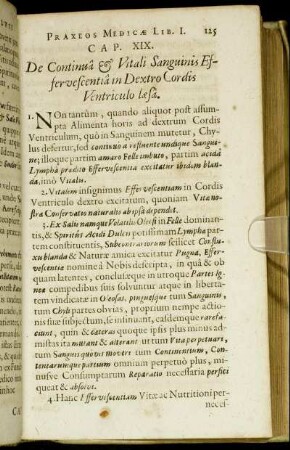 PRAXEOS MEDICÆ LIB. I. 125
CAP. XIX.
De Continuâ & Vitali Sanguinis Ef-
fervescentiâ in Dextro Cordis
Ventriculo læsâ.
1. NOn tantùm, quando aliquot post assum-
pta Alimenta horis ad dextrum Cordis
Ventriculum, quò in Sanguinem mutetur, Chy-
lus defertur, sed continuò à refluente undique Sangui-
ne; illoque partim amaro Felle imbuto, partim acidâ
Lymphâ prædito Effervescentia excitatur ibidem blan-
da, imò Vitalis.
2. Vitalem insignimus Effervescentiam in Cordis
Ventriculo dextro excitatam, quoniam Vita no-
stra Conservatio naturalis ab ipsâ dependit.
3. Ex Salis namque Volatilis Oleosi in Felle dominan-
tis, & Spiritûs Acidi Dulcis potissimam Lymphæ par-
tem constituentis, Sub intrantium scilicet Confluxu
xu blandâ & Naturæ amicâ excitatur Pugna, Effer-
vescentiæ nomine à Nobis descripta, in quâ & ob
quam latentes, conclusæque in utroque Partes Ignis
compedibus suis solvuntur atque in liberta-
tem vindicatæ in Oleosas, pinguesque tum Sanguinis,
tum Chyli partes obvias, proptium nempe actio-
nis suæ subjectum, se insinuant, ealdemque rarefa-
ciunt, quin & eatenus quoque ipsis plus minus ad-
mistas ita mutant & alterant ut tum Vita perpetuare,
tum Sanguis quotus movere tum Continentium, Con-
tentarumque partium omnium perpetuò plus, mi-
nusve Consumptarum Reparatio necessaria perfici
queat & absolvi.
4. Hanc Effervescentiam Vitæ ac Nutritioni per-
neces-